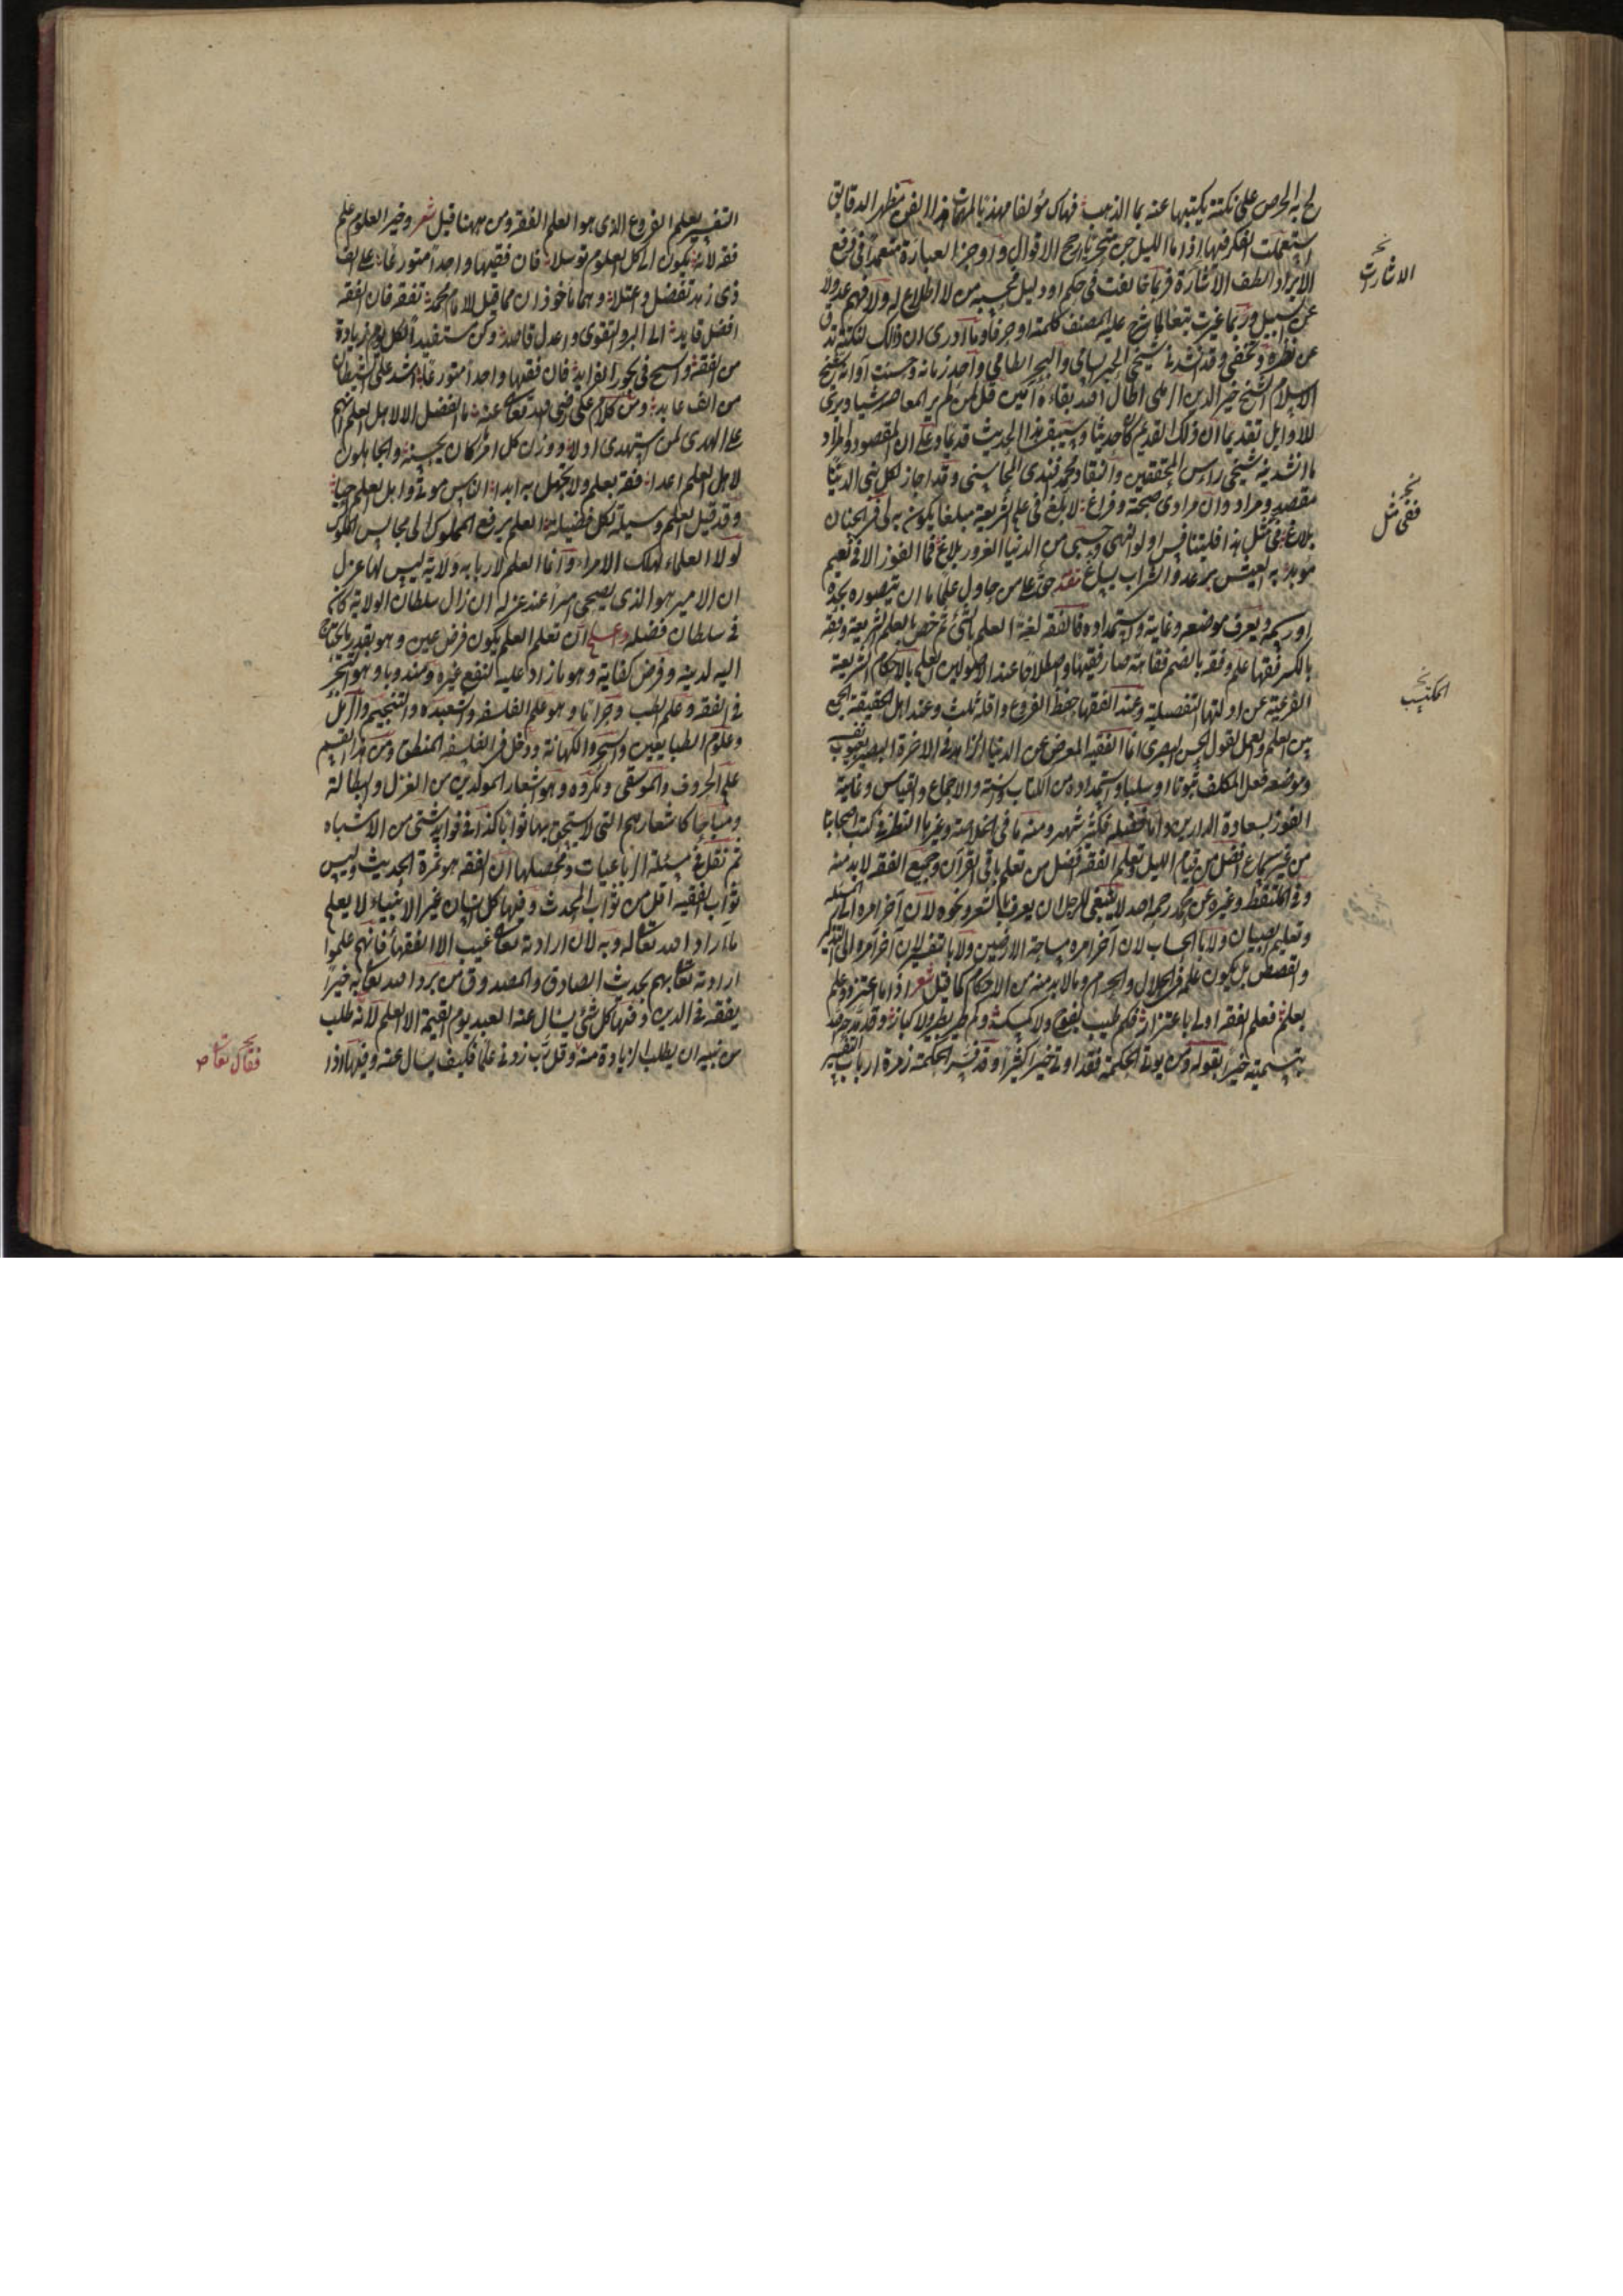 لح به الحرص على نكتة يكتبها عنه بما الذهب فهاك مؤلفا مهذبا لمهمات هذا الفن مظهرا لدقايق
استعملت الفكر فيها اذا ما الليل جن متحريا ارجح الاقوال واوجز العبارة معتمدا في دفع
الايراد الطف الاشارة فربما خالفت في حكم او دليل فحسبه من لا اطلاع له ولا فهم عدولا
عن السبيل وربما غيرت تبعا لما شرح عليه المصنف كلمة او حرفا وما درى ان ذلك لنكتة تدق
عن نظره وتخفى وقد انشدني شيخي الحبر السامي والبحر الطامي واحد زمانه وحسنت اوانه شيخ
الاسلام الشيخ خير الدين الرملي اطال الله بقاءه آمين قل لمن لم ير المعاصر شيا ويرى
للاوايل تقديما ان ذاك القديم كان حديثا وسيبقى هذا الحديث قديما وعلى ان المقصود والمراد
ما انشدنيه شيخي راس المحققين والنقاد محمد افندي المحاسني وقد اجاز لكل بني الدنيا
مقصد ومراد وان مرادي صحة وفراغ لابلغ في علم الشريعة مبلغا يكون به لي في الجنان
بلاغ ففي مثل هذا فليتنافس اولو النهى وحسبي من الدنيا الغرور بلاغ فما الفوز الا في نعيم
مؤبد به العيش رغد والشراب يساغ مقدمة حق على من حاول علما ما ان يتصوره بحده
او رسمه ويعرف موضوعه وغايته واستمداده فالفقه لغة العلم بالشئ ثم خص بعلم الشريعة وفقه
بالكسر فقها علم وفقه بالضم فقاهة صار فقيها واصطلاحا عند الاصوليين العلم بالاحكام الشرعية
الفرعية عن ادلتها التفصيلية وعند الفقها حفظ الفروع واقله ثلث وعند اهل الحقيقة الجمع
بين العلم والعمل لقول الحسن البصري انما الفقيه المعرض عن الدنيا الزاهد في الاخرة البصير بعيوب نفسه
وموضوعه فعل المكلف ثبوتا او سلبا واستمداده من الكتاب والسنة والاجماع والقياس وغايته
الفوز بسعادة الدارين واما فضله فكثير شهير ومنه ما في الخلاصة وغيرها النظر في كتب اصحابنا
من غير سماع افضل من قيام الليل وتعلم الفقه افضل من تعلم باقي القرآن وجميع الفقه لا بد منه
وفي الملتقط وغيره عن محمد رحمه الله لا ينبغي للرجل ان يعرف بالشعر والنحو لان آخر امره الى المسئلة
وتعليم الصبيان ولا بالحساب لان آخر امره مساحة الارضين ولا بالتفسير لان آخر امره الى التذكير
والقصص بل يكون علمه في الحلال والحرام وما لا بد منه من الاحكام كما قيل شعر اذا ما اعتز ذو علم
بعلم فعلم الفقه اولى باعتزاز فكم طيب يفوح ولا كمسك وكم طير يطير ولا كباز وقد مدحه الله
بتسميته خيرا بقوله ومن يوت الحكمة فقد اوتي خيرا كثيرا وقد فسر الحكمة زمرة ارباب التفسير
الاشارت
نخ
ففي مثل
نخ
المكتسب
التفسير بعلم الفروع الذي هو العلم الفقه ومن ههنا قيل شعر وخير العلوم علم
فقه لانه يكون الى كل العلوم توسلا فان فقيها واحدا متورعا على الف
ذي زهد تفضل واعتلا وهما ماخوذان مما قيل للامام محمد تفقه فان الفقه
افضل قايد الى البر والتقوى واعدل قاصد وكن مستفيدا كل يوم زيادة
من الفقه واسبح في بحور الفوايد فان فقيها واحدا متورعا اشد على الشيطان
من الف عابد ومن كلام علي رضي الله تعالى عنه ما الفضل الا لاهل العلم انهم
على الهدى لمن استهدى ادلاء ووزن كل امرء ما كان يحسنه والجاهلون
لاهل العلم اعداء ففز بعلم ولا تجهل به ابدا الناس موتى واهل العلم احياء
وقد قيل العلم وسيلة لكل فضيلة العلم يرفع المملوك الى مجالس الملوك
لولا العلماء لهلك الامراء وانما العلم لاربابه ولاية ليس لها عزل
ان الامير هو الذي يضحى اميرا عند عزله ان زال سلطان الولاية كان
في سلطان فضله واعلم ان تعلم العلم يكون فرض عين وهو بقدر ما يحتاج
اليه لدينه وفرض كفاية وهو ما زاد عليه لنفع غيره ومندوبا وهو التبحر
في الفقه وعلم القلب وحراما وهو علم الفلسفة والشعبده والتنجيم والرمل
وعلوم الطبايعيين والسحر والكهانة ودخل في الفلسفة المنطق ومن هذا القسم
علم الحروف والموسقى ومكروه وهو اشعار المولدين من الغزل والبطالة
ومباحا كاشعارهم التي لا يستحق بها ثوابا كذا في فوايد شتى من الاشباه
ثم نقل في مسئلة الرباعيات ومحصلها ان الفقه هو ثمرة الحديث وليس
ثواب الفقيه اقل من ثواب المحدث وفيها كل انسان غير الانبياء لا يعلم
ما اراد الله تعالى له وبه لان ارادته تعالى غيب الا الفقهاء فانهم علموا
ارادته تعالى بهم بحديث الصادق والمصدوق من يرد الله تعالى به خيرا
يفقه في الدين وفيها كل شئ يسال عنه العبد يوم القيمة الا العلم لانه طلب
من نبيه ان يطلب الزيادة منه وقل رب زدني علما فكيف يسال عنه وفيها اذا
فقال تعالى